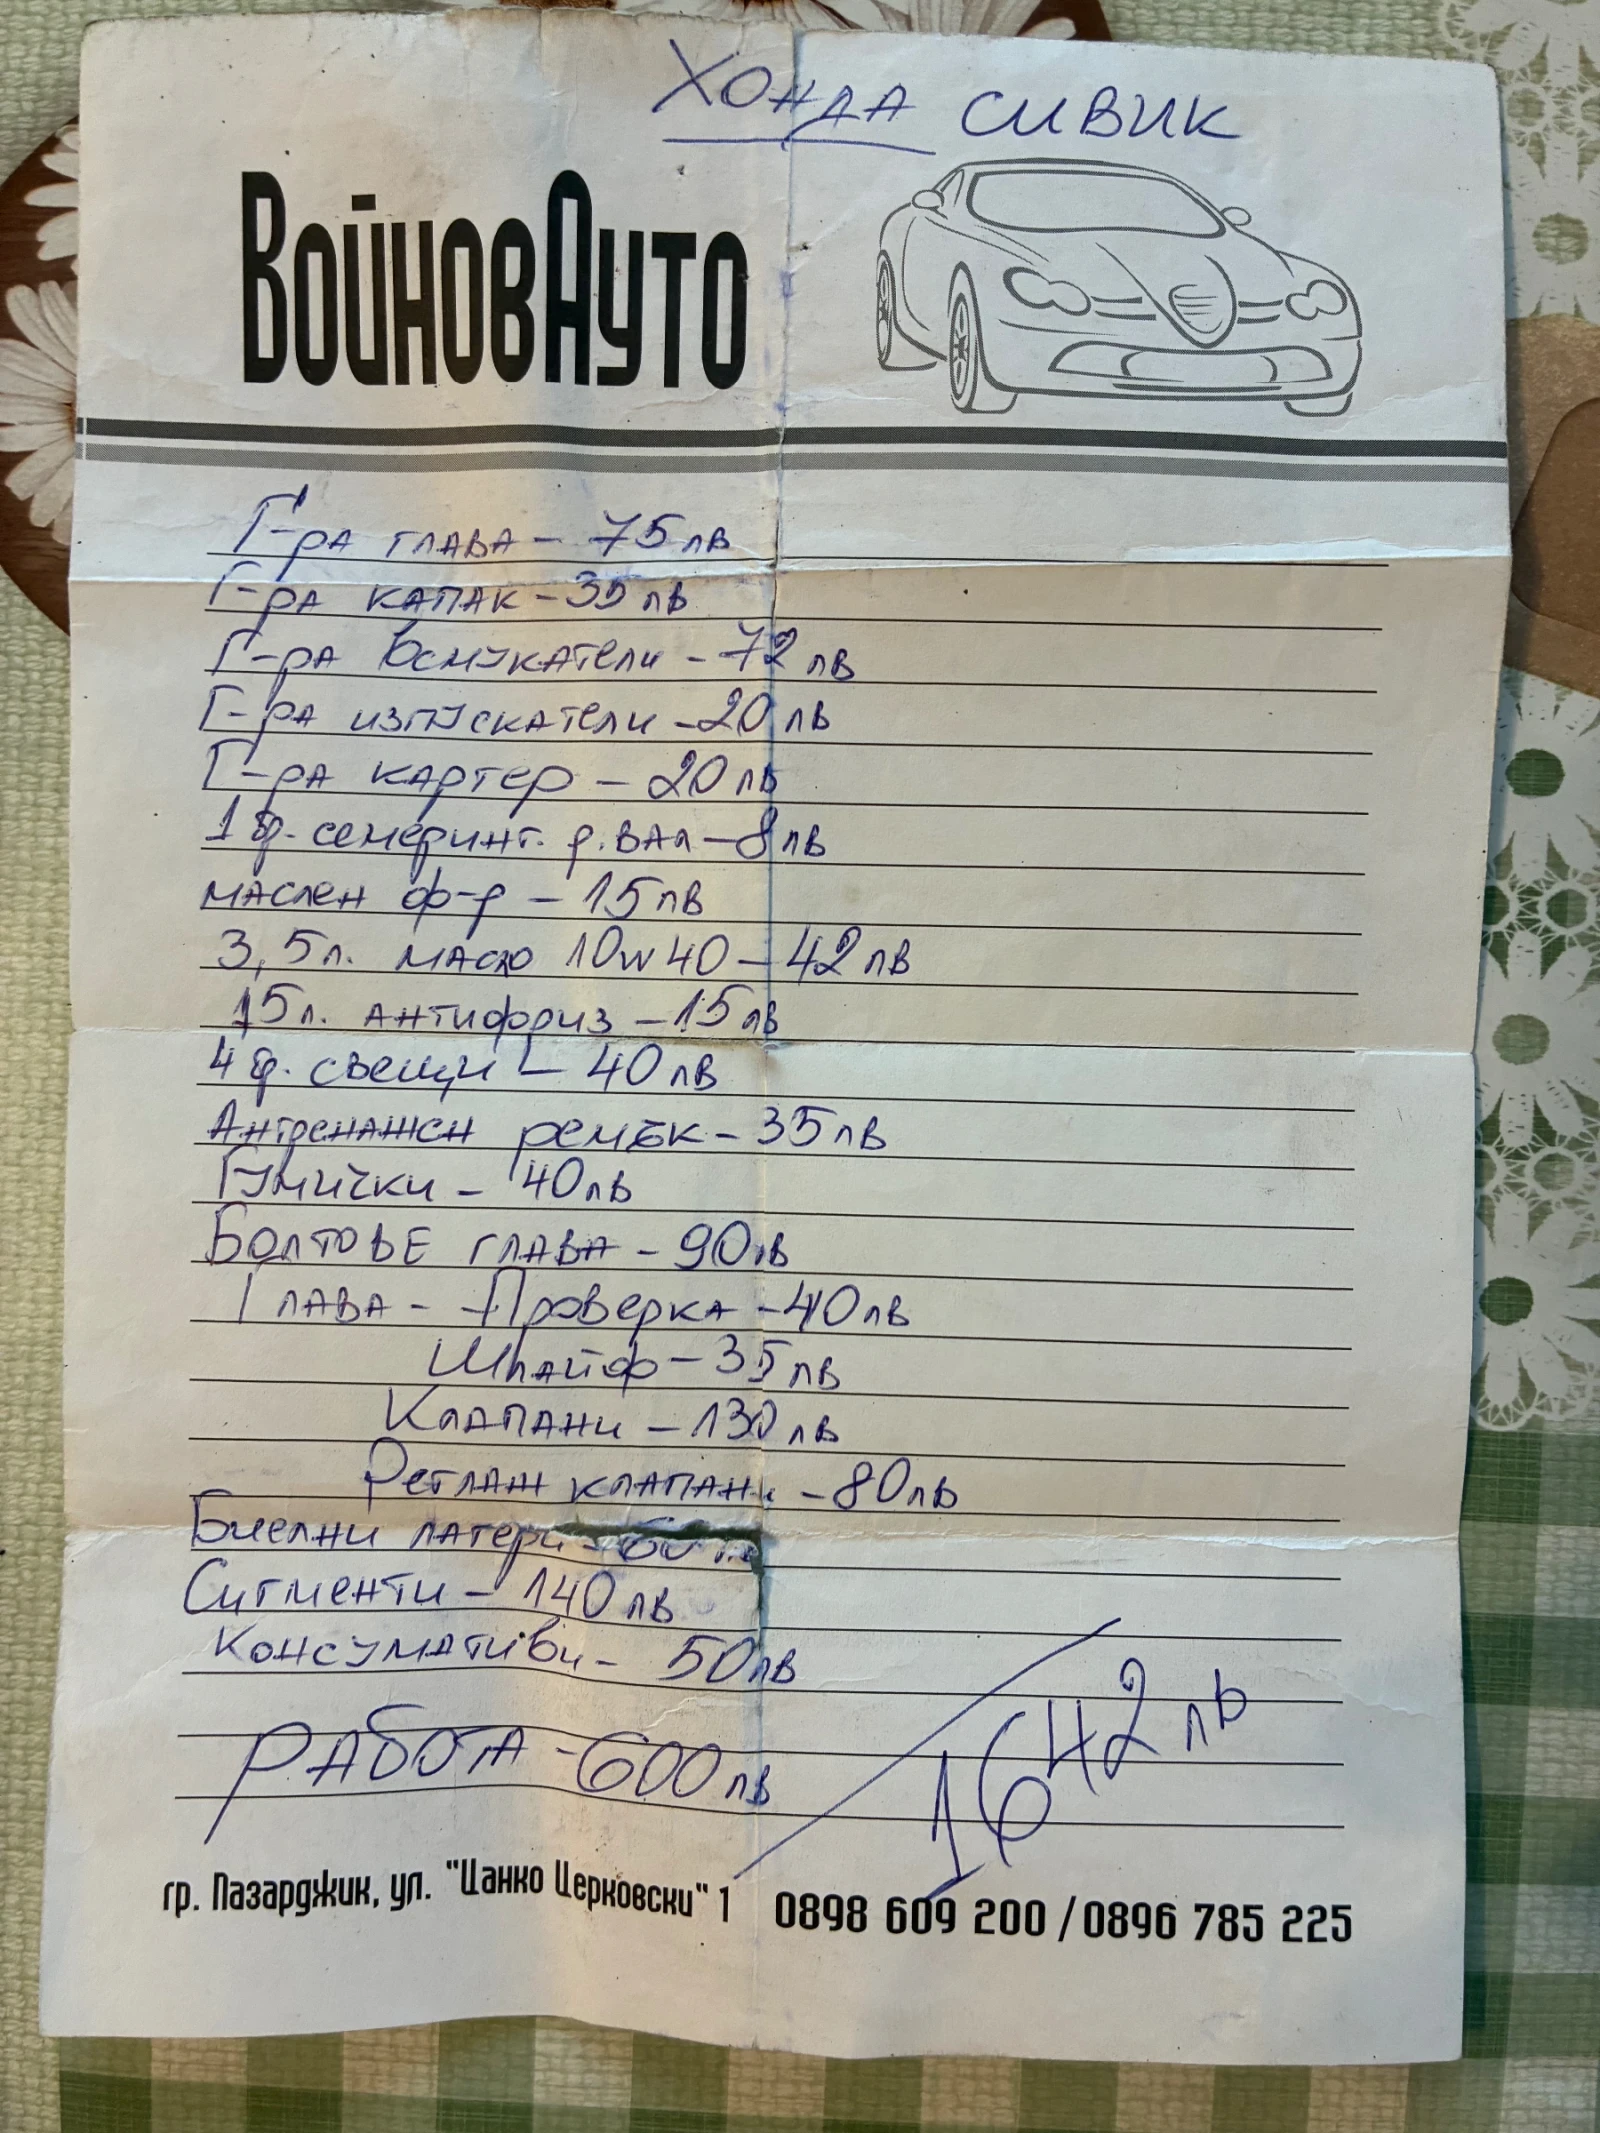 ХОНДА СИВИК
ВойновАуто
Г-РА ГЛАВА - 75лв
Г-РА КАПАК - 35 лв
Г-РА ВСМУКАТЕЛИ - 72 лв
Г-РА ИЗПУСКАТЕЛИ - 20 лв
Г-РА КАРТЕР - 20 лв
1 бр. семеринг р. ВАЛ - 8лв
МАСЛЕН ф-р - 15лв
3,5л. МАСЛО 10w40 - 42лв
АНТИФРИЗ - 15лв
4 бр. свещи - 40лв
Ангренажен ремък - 35лв
Гумички - 40лв
БОЛТОВЕ ГЛАВА - 90лв
ГЛАВА - Проверка - 40лв
Шлайф - 35лв
КЛАПАНИ - 130 лв
Реглаж клапани - 80лв
Биелни лагери - 60
Сигменти - 140лв
Консумативи - 50лв
РАБОТА - 600лв
1642 лв
гр. Пазарджик, ул. "Цанко Церковски" 1 0898 609 200 / 0896 785 225